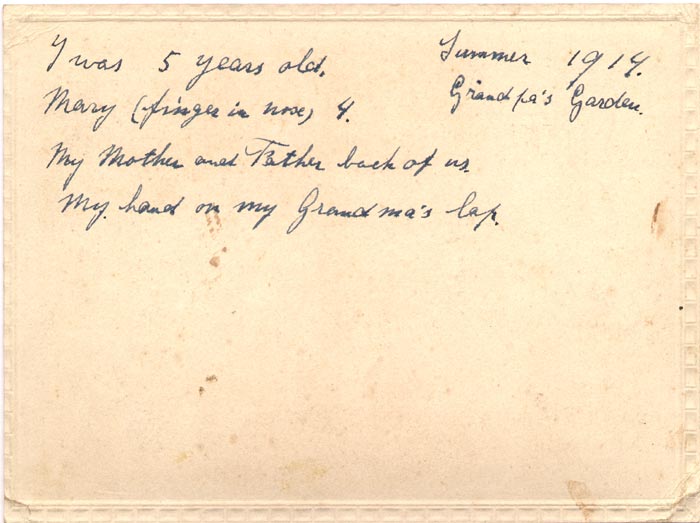 I was 5 years old.
Summer 1914.
Mary (finger in nose) 4.
Grandpa's Garden.
My Mother and Father back of us.
My hand on my Grandma's lap.